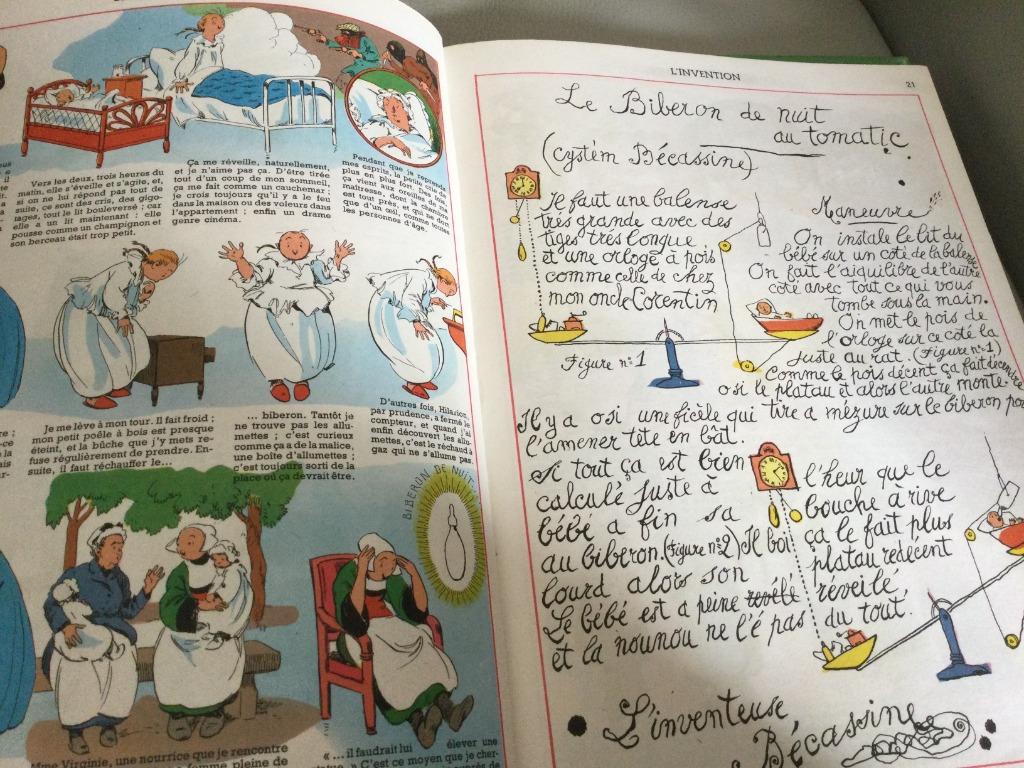 Vers les deux, trois heures du
matin, elle s'éveille et s'agite, et,
si on ne lui répond pas tout de
suite, ce sont des cris, des gigo-
tages, tout le lit bouleversé ; car
elle a un lit maintenant : elle
pousse comme un champignon et
son berceau était trop petit.
Ça me réveille, naturellement,
et je n'aime pas ça. D'être tirée
tout d'un coup de mon sommeil,
ça me fait comme un cauchemar ;
je crois toujours qu'il y a le feu
dans la maison ou des voleurs dans
l'appartement ; enfin un drame
genre cinéma.
Pendant que je reprends
mes esprits, la petite crie de
plus en plus fort. Des fois,
ça vient aux oreilles de ma
maîtresse, dont la chambre
est tout près, et qui ne dort
que d'un œil, comme toutes
les personnes d'âge.
Je me lève à mon tour. Il fait froid ;
mon petit poêle à bois est presque
éteint, et la bûche que j'y mets re-
fuse régulièrement de prendre. En-
suite, il faut réchauffer le...
... biberon. Tantôt je
ne trouve pas les allu-
mettes ; c'est curieux
comme ça a de la malice,
une boîte d'allumettes ;
c'est toujours sorti de la
place où ça devrait être.
D'autres fois, Hilarion,
par prudence, a fermé le
compteur, et quand j'ai
enfin découvert les allu-
mettes, c'est le réchaud à
gaz qui ne s'allume pas.
BIBERON DE NUIT
Mme Virginie, une nourrice que je rencontre
femme pleine de
« ... il faudrait lui élever une
» C'est ce moyen que je cher-
L'INVENTION
21
Le Biberon de nuit
au tomatic
(cystém Bécassine)
Je faut une balense
très grande avec des
tiges très longue
et une orloge a pois
comme celle de chez
mon oncle Corentin
Figure n°1
Maneuvre
On instale le lit du
bébé sur un coté de la balense
On fait l'aiquilibre de l'autre
coté avec tout ce qui vous
tombe sous la main.
On met le pois de
l'orloge sur ce coté la
juste au rat. (Figure n°1)
Comme le pois décent ça fait décendre
osi le platau et alors l'autre monte.
Il y a osi une ficèle qui tire a mézura sur le biberon pour
l'amener tête en bât.
Si tout ça est bien
calculé juste à
bébé a fin sa
au biberon. (figure n°2) Il boi
lourd alors son
Le bébé est a peine
et la nounou ne l'é pas
l'heur que le
bouche arive
ça le fait plus
platau redécent
réveilé,
du tout.
L'inventeuse
Bécassine